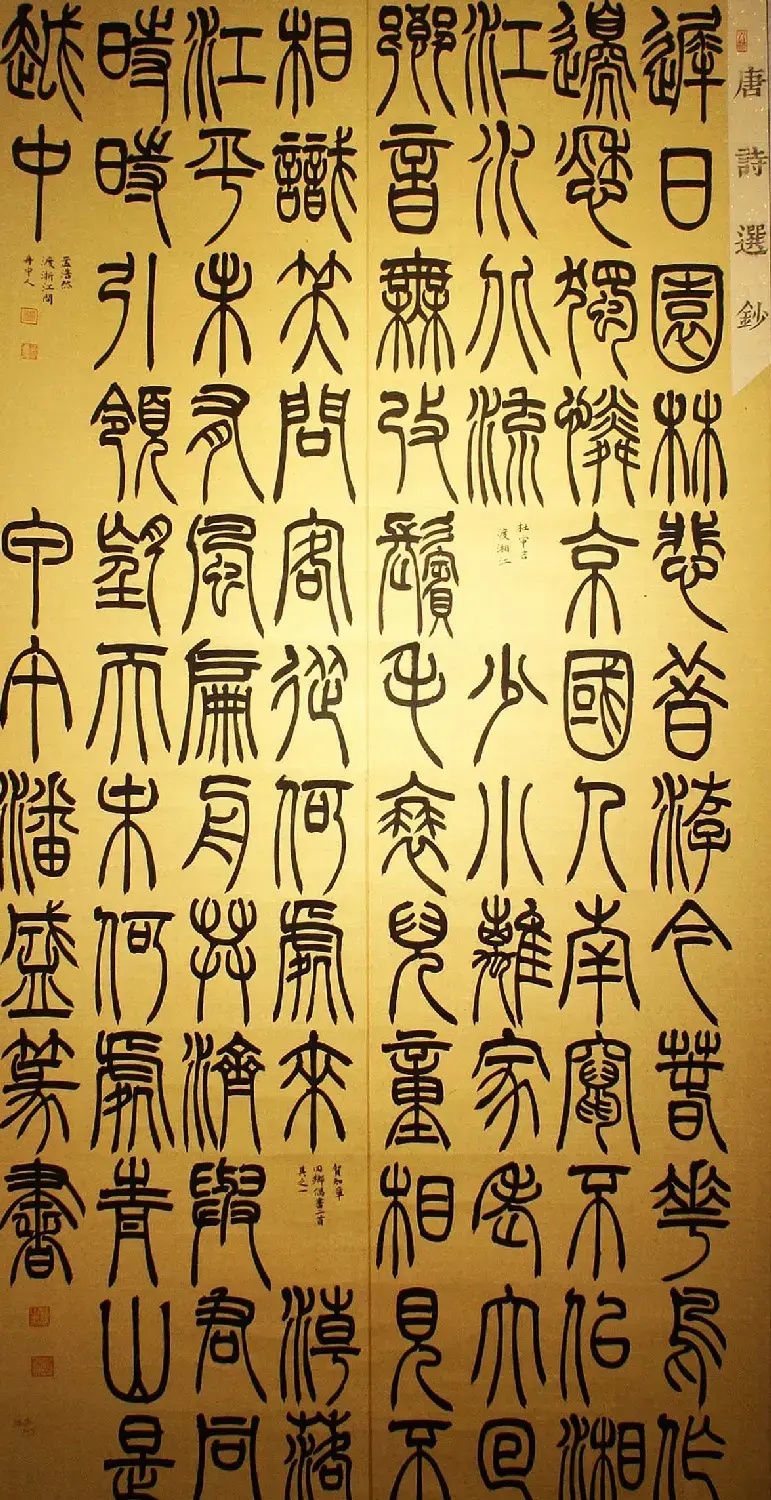 唐詩選鈔
遲日園林悲昔游今春花鳥作
邊愁獨憐京國人南竄不似湘
江水北流
杜審言
渡湘江
少小離家老大回
鄉音無改鬢毛衰兒童相見不
相識笑問客從何處來
賀知章
回鄉偶書二首
其之一
潮落
江平未有風扁舟共濟與君同
時時引領望天末何處青山是
越中
孟浩然
渡浙江問
舟中人
甲午潘盛篆書